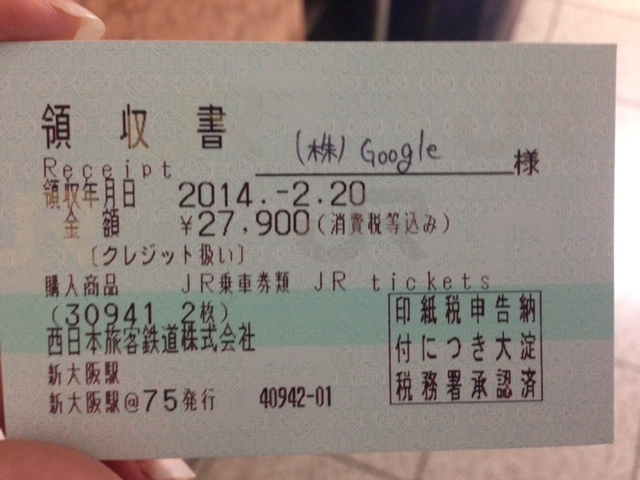 領収書
Receipt (株) Google 様
領収年月日 2014.-2.20
金額 ¥27,900(消費税等込み)
〔クレジット扱い〕
購入商品 JR乗車券類 JR tickets
(30941 2枚)
西日本旅客鉄道株式会社
新大阪駅
新大阪駅@75発行 40942-01
印紙税申告納
付につき大淀
税務署承認済